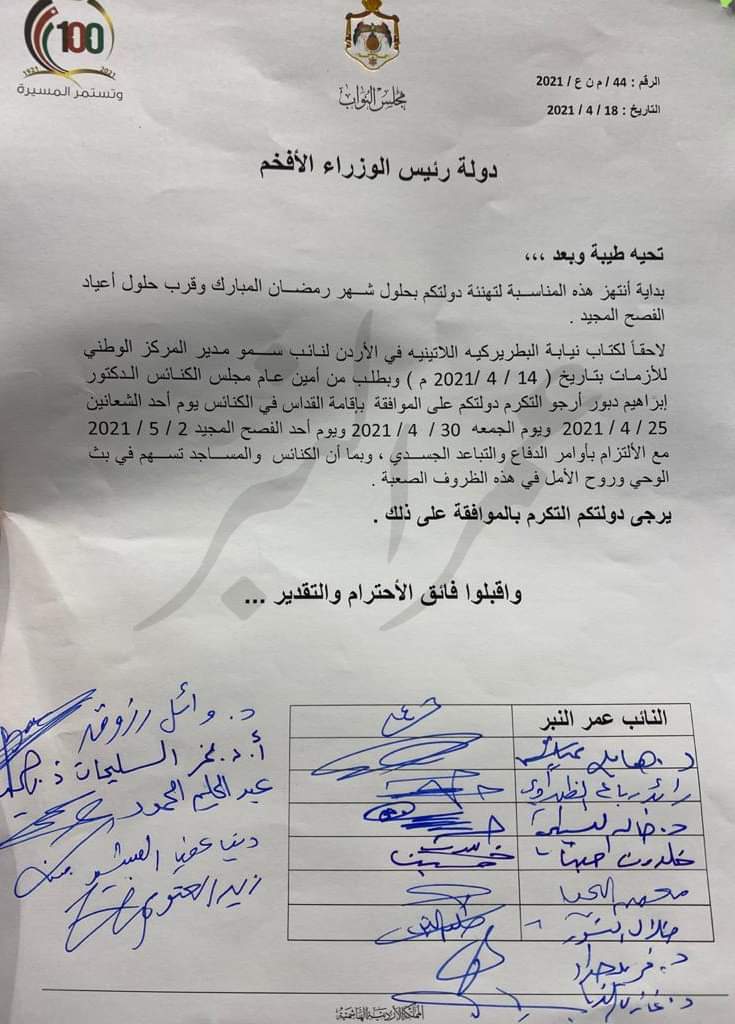 100
1921 2021
وتستمر المسيرة
مجلس النواب
الرقم : 44 / م ن ع / 2021
التاريخ : 18 / 4 / 2021
دولة رئيس الوزراء الأفخم
تحيه طيبة وبعد ،،،
بداية أنتهز هذه المناسبة لتهنئة دولتكم بحلول شهر رمضان المبارك وقرب حلول أعياد
الفصح المجيد .
لاحقاً لكتاب نيابة البطريركيه اللاتينيه في الأردن لنائب سمو مدير المركز الوطني
للأزمات بتاريخ ( 14 / 4 /2021 م ) وبطلب من أمين عام مجلس الكنائس الدكتور
إبراهيم دبور أرجو التكرم دولتكم على الموافقة بإقامة القداس في الكنائس يوم أحد الشعانين
25 / 4 / 2021 ويوم الجمعه 30 / 4 / 2021 ويوم أحد الفصح المجيد 2 / 5 / 2021
مع الألتزام بأوامر الدفاع والتباعد الجسدي ، وبما أن الكنائس والمساجد تسهم في بث
الوحي وروح الأمل في هذه الظروف الصعبة .
يرجى دولتكم التكرم بالموافقة على ذلك .
واقبلوا فائق الأحترام والتقدير ...
عمر النبر
النائب عمر النبر
رائد رباع الظهراوي
د. فريد حداد
د. وائل رزوق
عبد الحليم الحمود
زيد العتوم
المملكة الأردنية الهاشمية